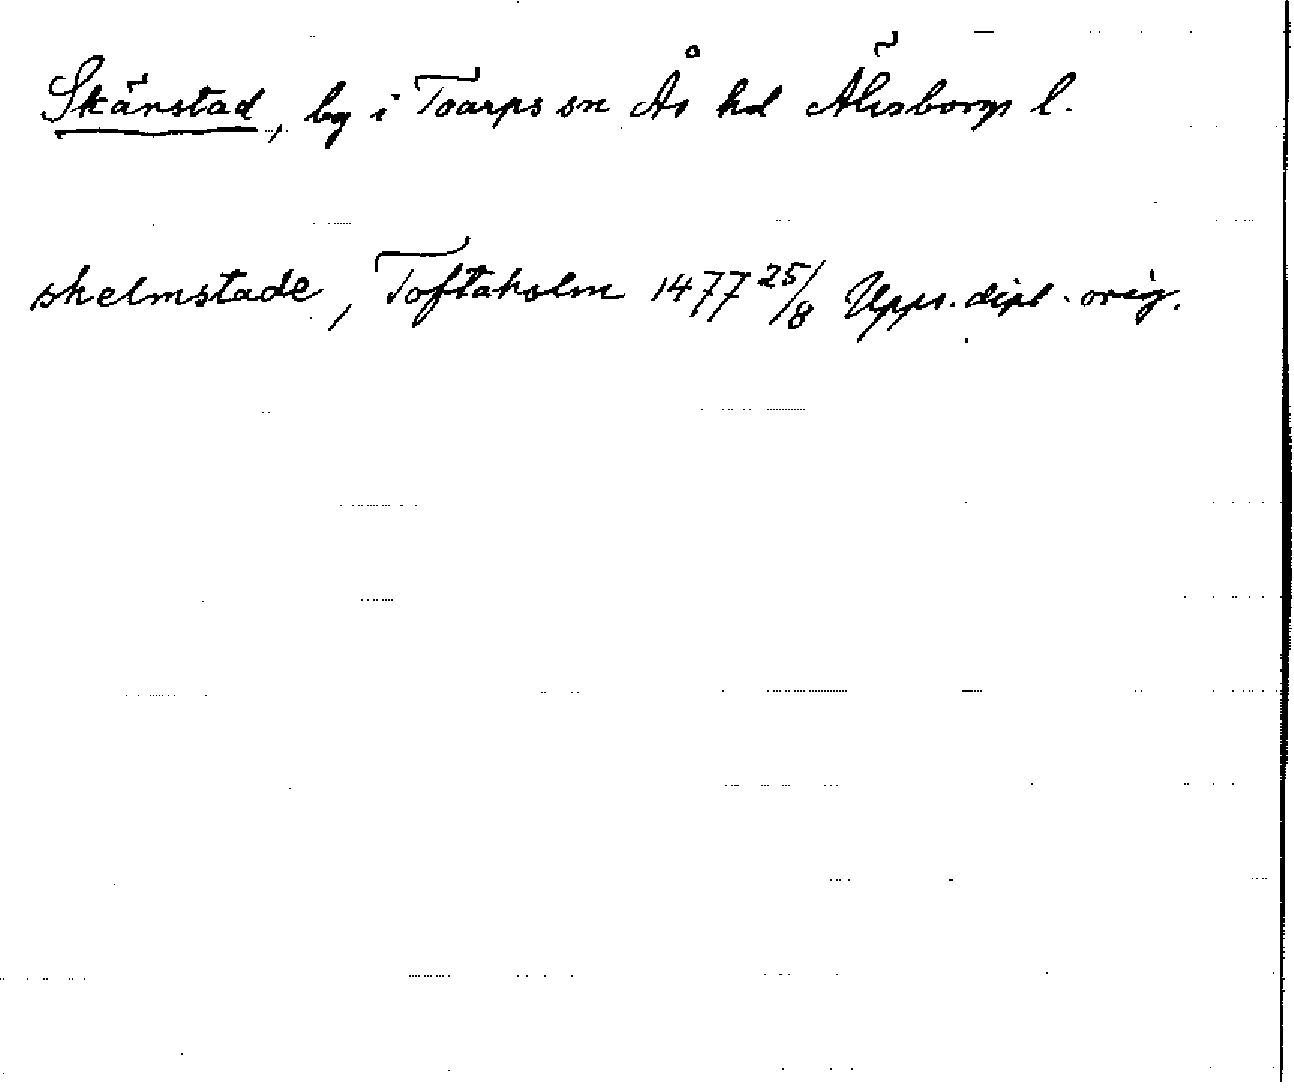 Skänstad, by i Toarps sn Ås hd Älvsborgs l.
skelmstade, Toftaholm 1477 25/8 Upps. dipl. orig.